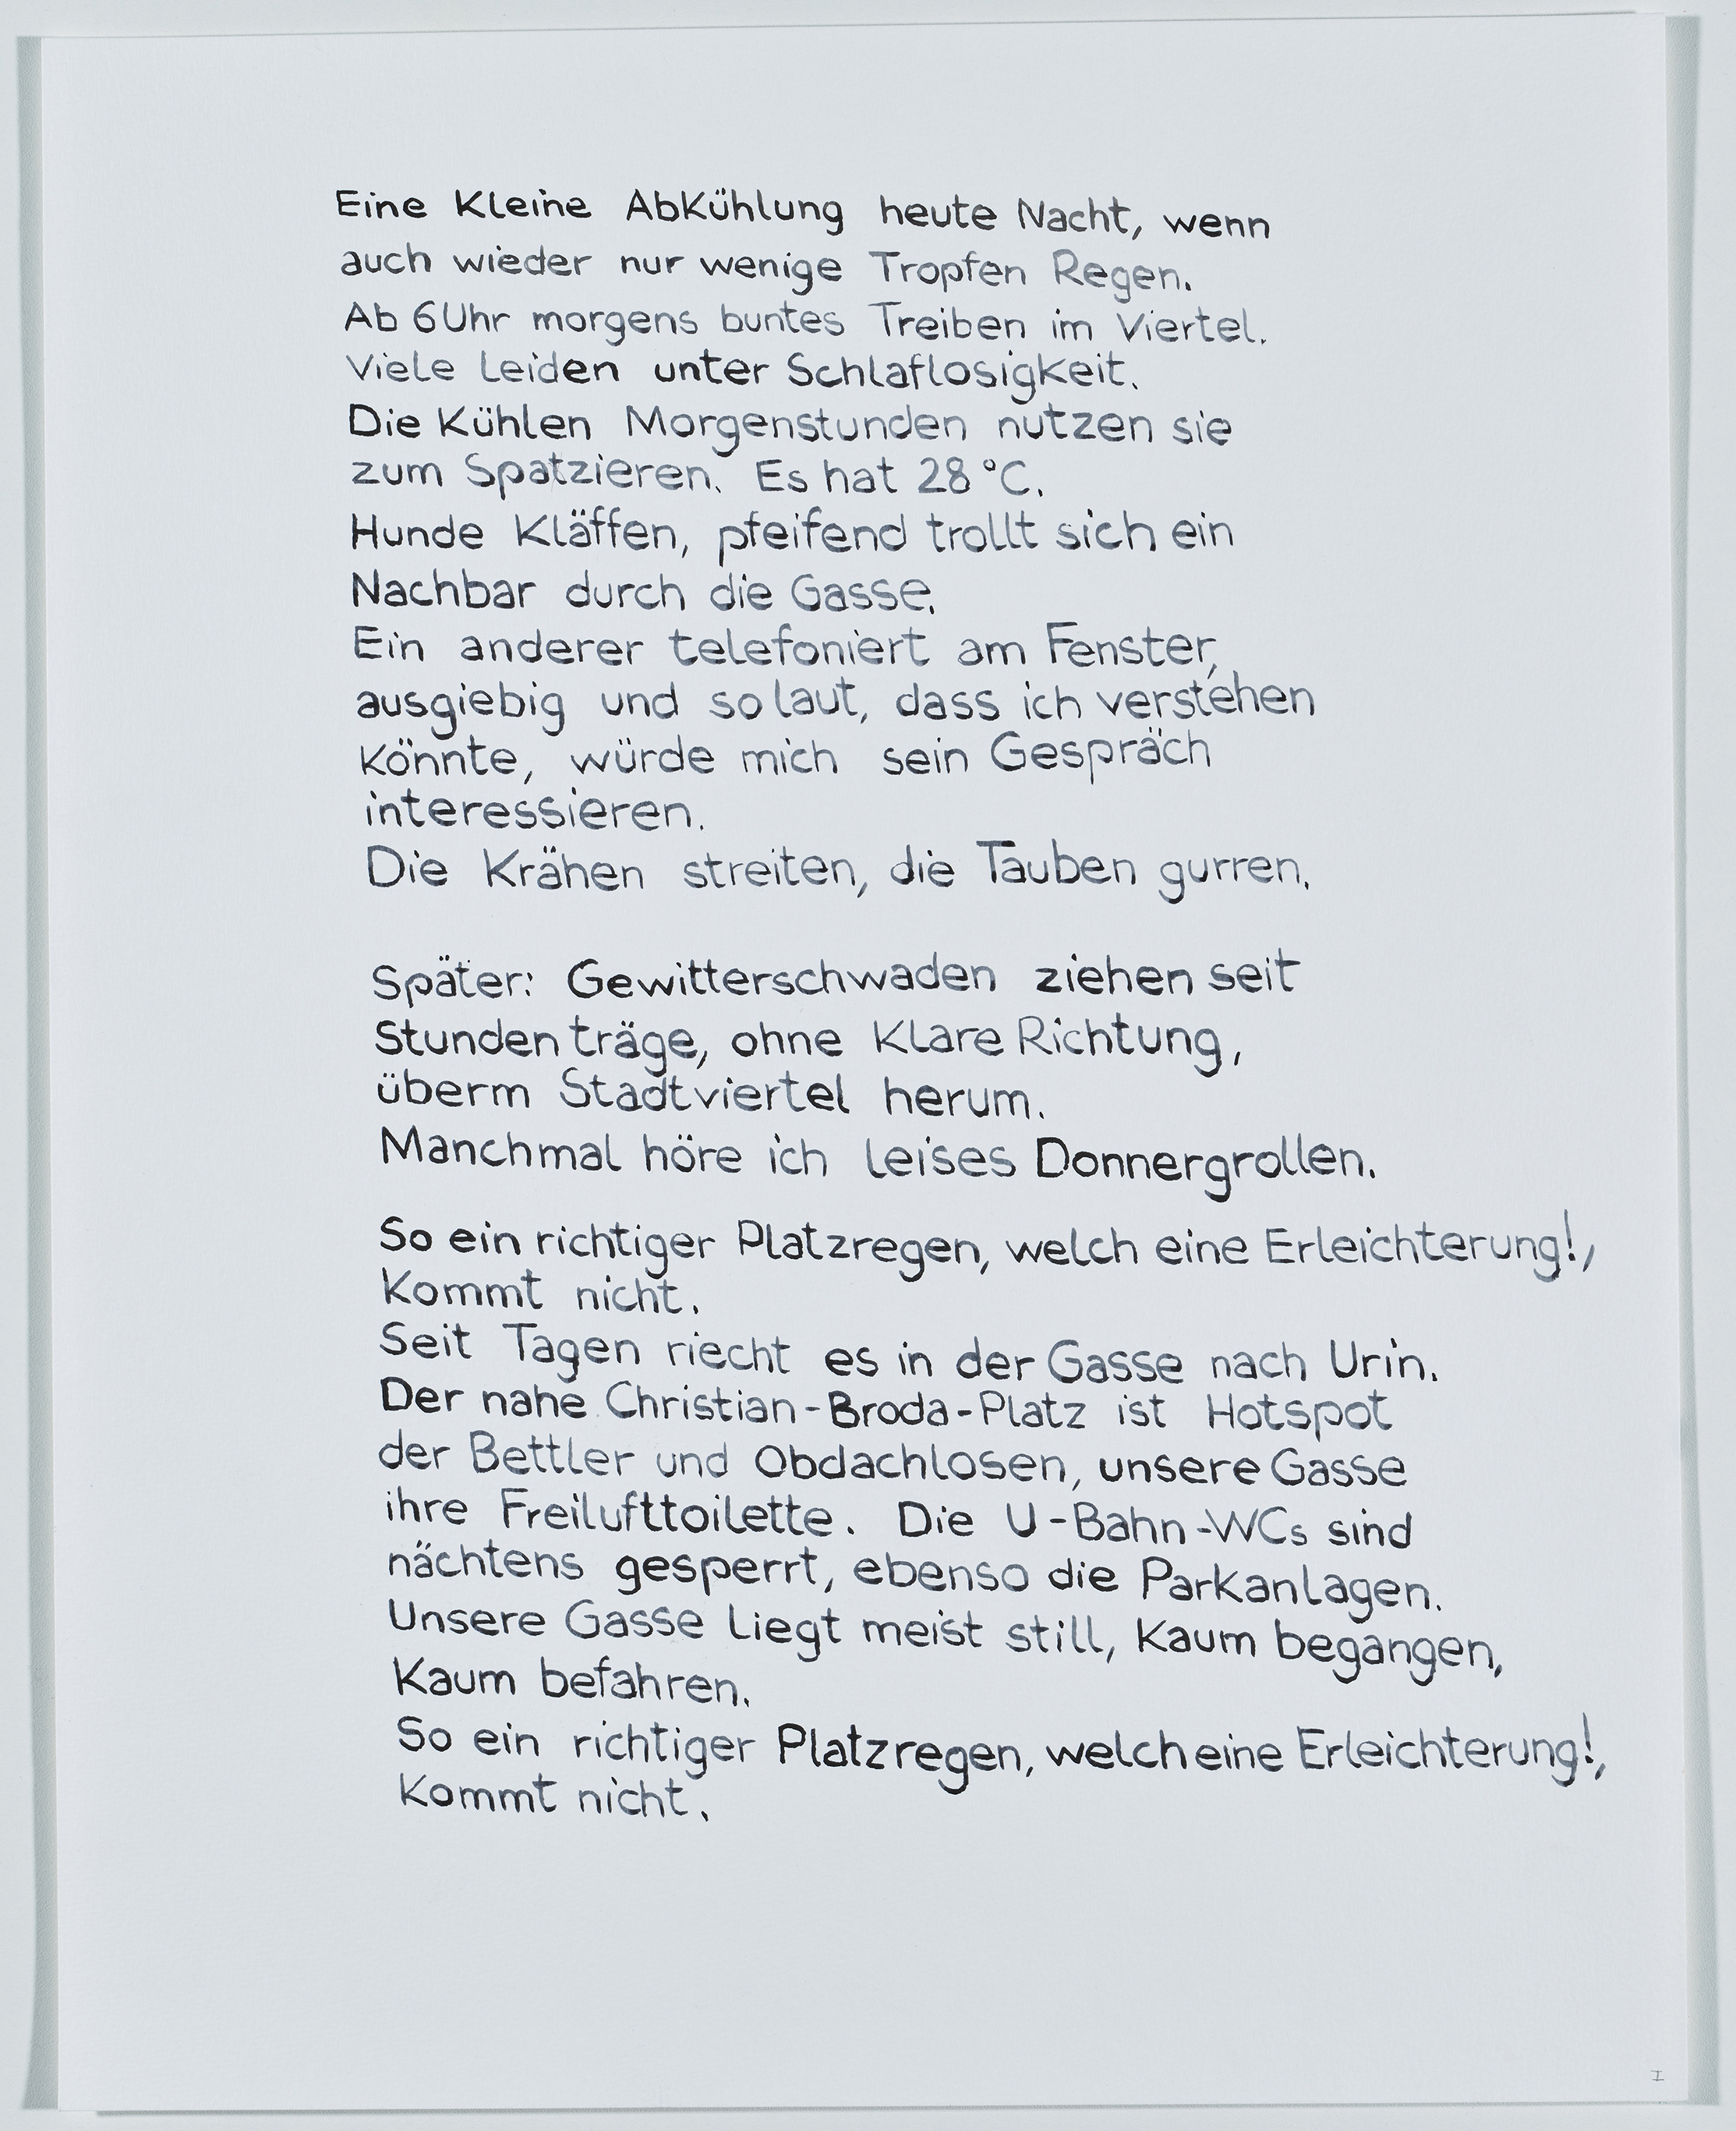 Eine kleine Abkühlung heute Nacht, wenn
auch wieder nur wenige Tropfen Regen.
Ab 6 Uhr morgens buntes Treiben im Viertel.
Viele leiden unter Schlaflosigkeit.
Die kühlen Morgenstunden nutzen sie
zum Spatzieren. Es hat 28 °C.
Hunde kläffen, pfeifend trollt sich ein
Nachbar durch die Gasse.
Ein anderer telefoniert am Fenster,
ausgiebig und so laut, dass ich verstehen
könnte, würde mich sein Gespräch
interessieren.
Die Krähen streiten, die Tauben gurren.
Später: Gewitterschwaden ziehen seit
Stunden träge, ohne klare Richtung,
überm Stadtviertel herum.
Manchmal höre ich leises Donnergrollen.
So ein richtiger Platzregen, welch eine Erleichterung!,
kommt nicht.
Seit Tagen riecht es in der Gasse nach Urin.
Der nahe Christian-Broda-Platz ist Hotspot
der Bettler und Obdachlosen, unsere Gasse
ihre Freilufttoilette. Die U-Bahn-WCs sind
nächtens gesperrt, ebenso die Parkanlagen.
Unsere Gasse liegt meist still, kaum begangen,
kaum befahren.
So ein richtiger Platzregen, welch eine Erleichterung!,
kommt nicht.
I